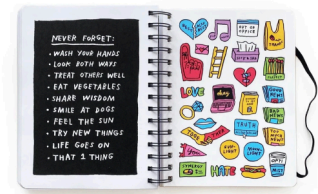 NEVER FORGET:
• WASH YOUR HANDS
• LOOK BOTH WAYS
• TREAT OTHERS WELL
• EAT VEGETABLES
• SHARE WISDOM
• SMILE AT DOGS
• FEEL THE SUN
• TRY NEW THINGS
• LIFE GOES ON
• THAT 1 THING
OUT OF OFFICE
LOVE
GOOD NEWS!
BAD NEWS!
TRUTH
HATE